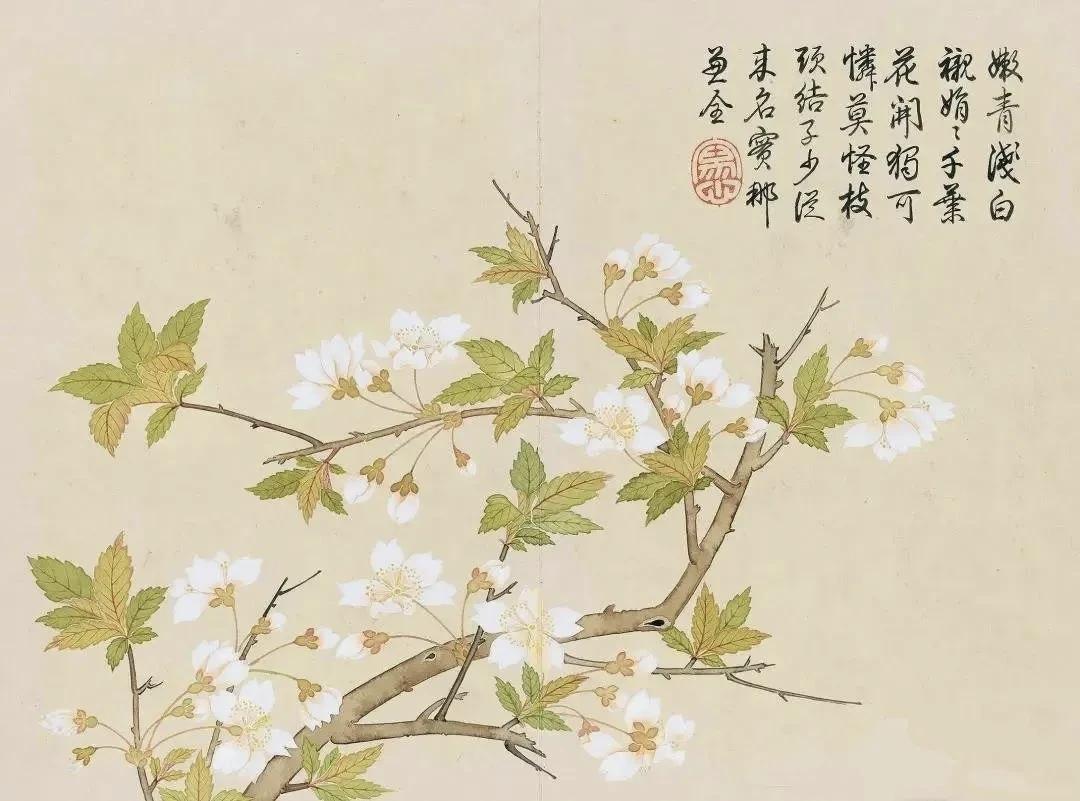 嫩青淺白
襯娟〻千葉
花開獨可
憐莫怪枝
頭結子少從
來名實那
兼全